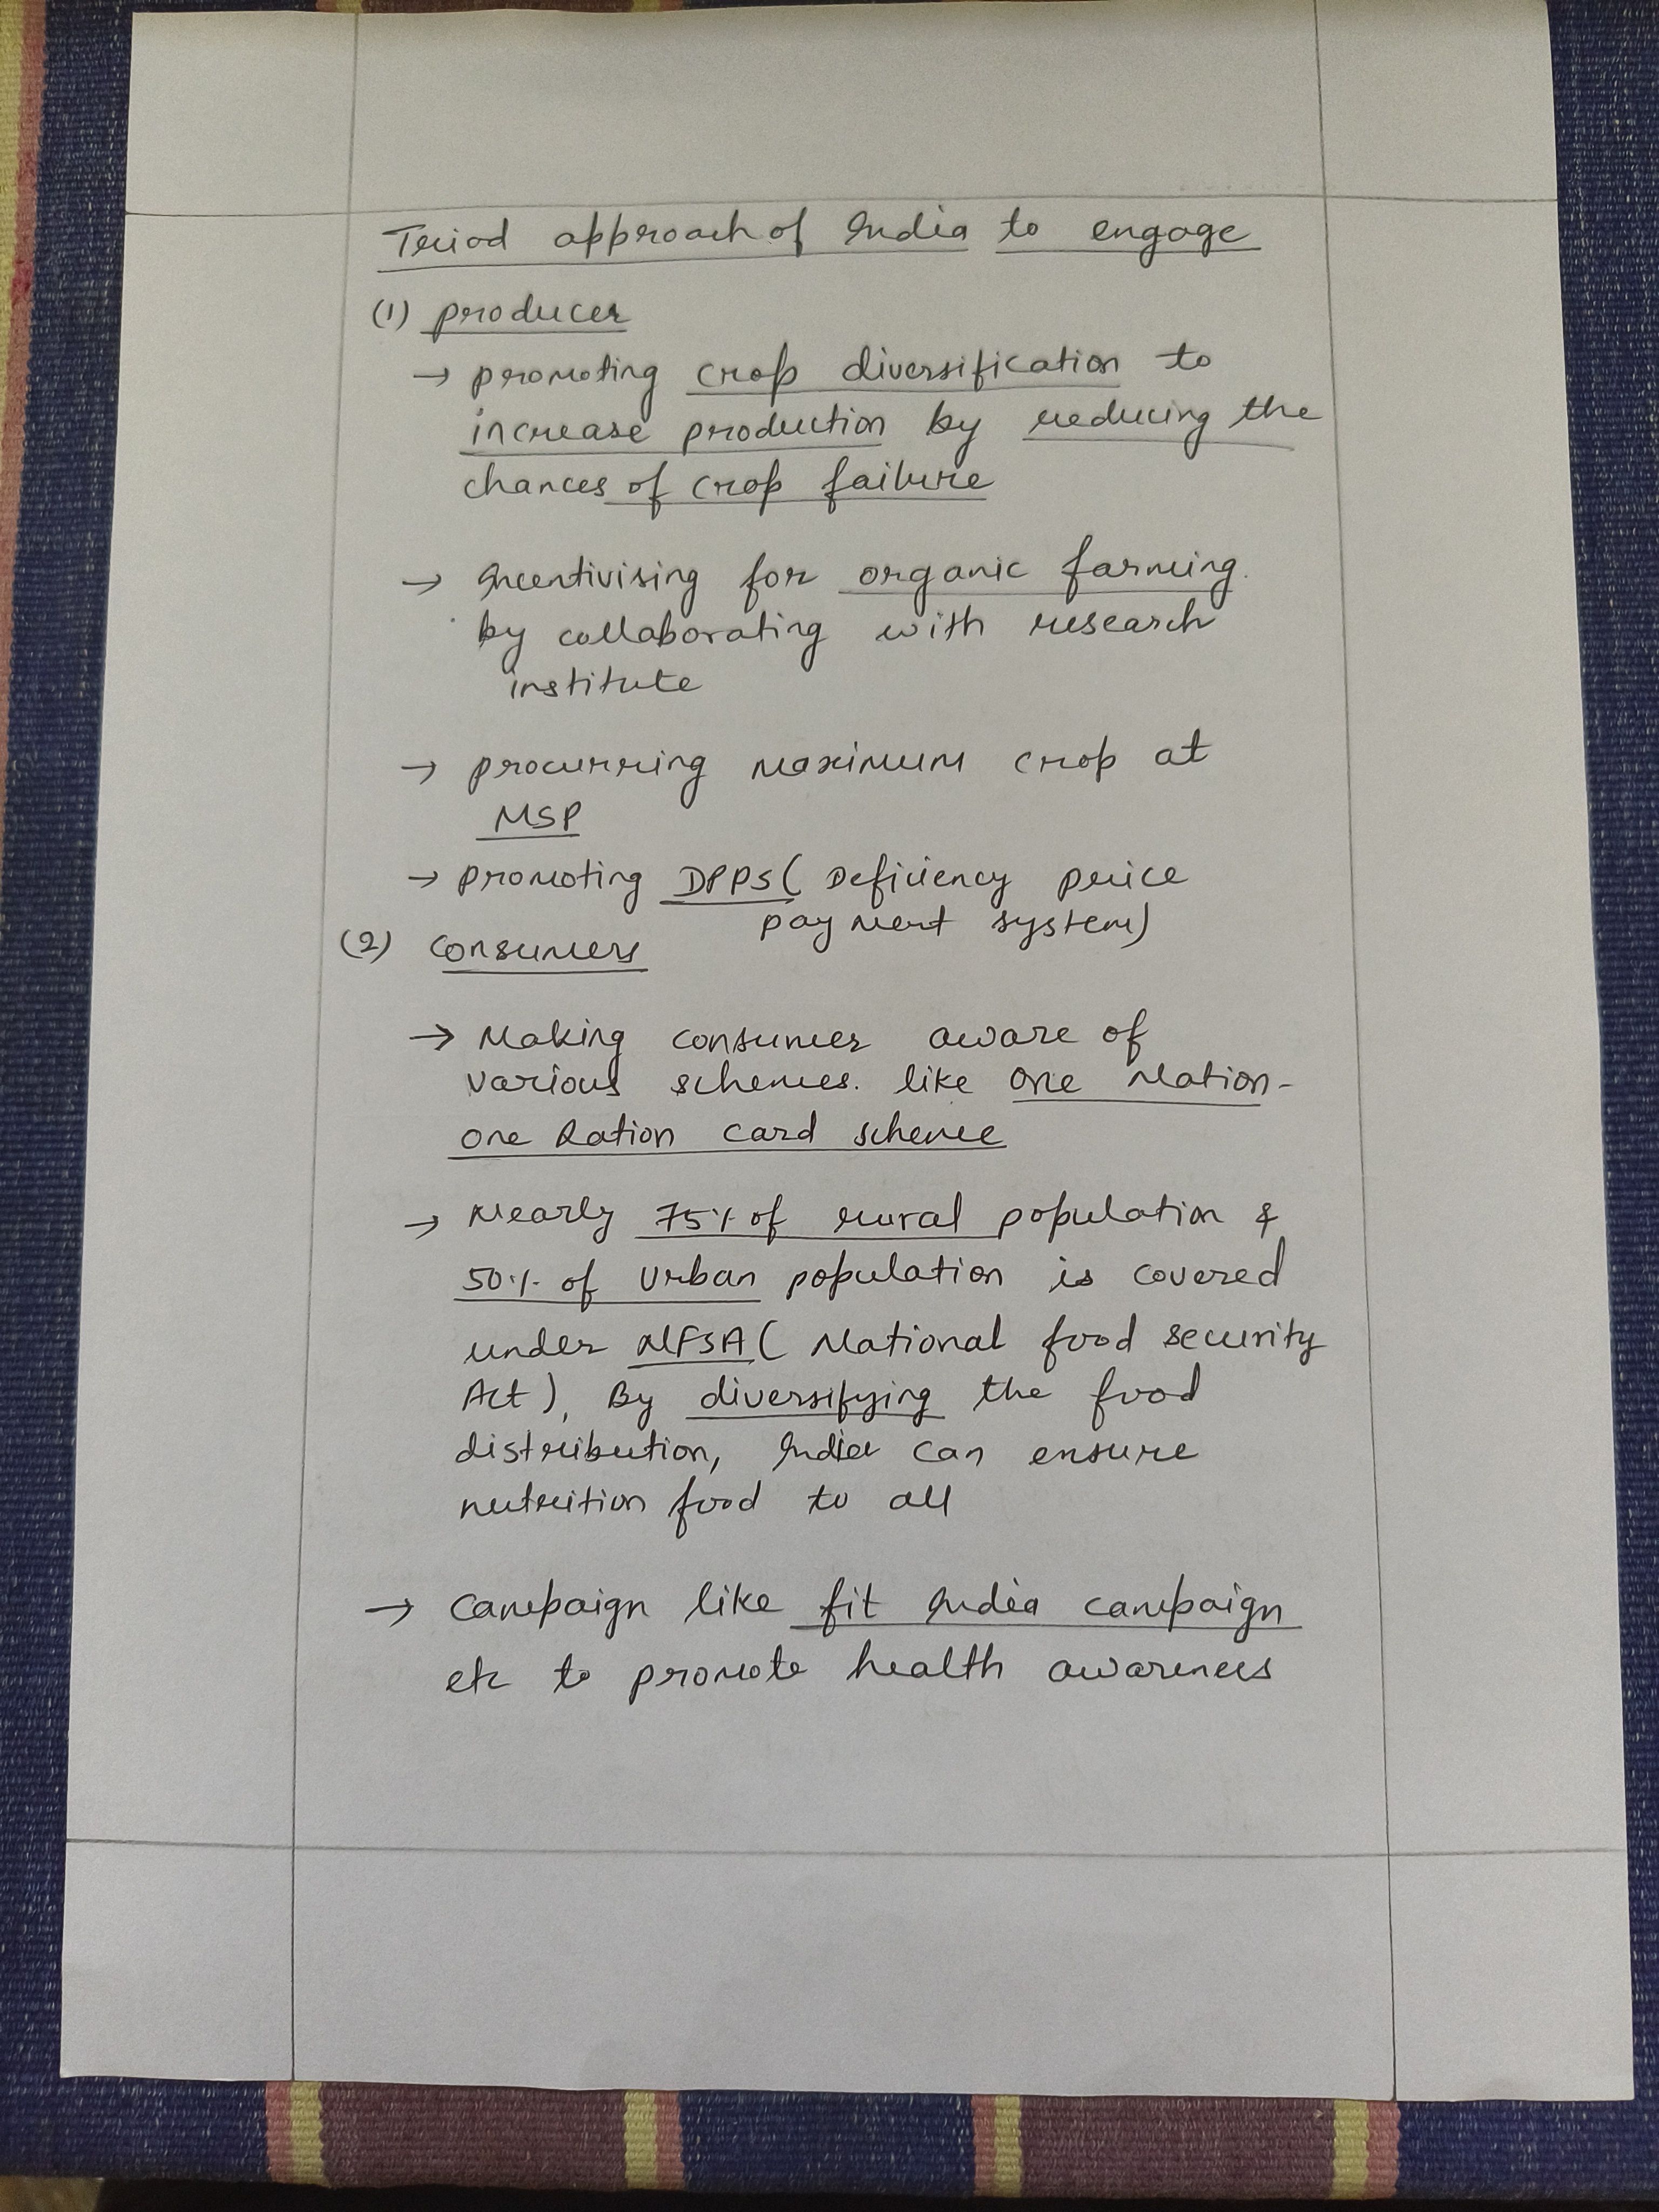 Triad approach of India to engage
(1) producer
→ promoting crop diversification to
increase production by reducing the
chances of crop failure
→ Incentivising for organic farming.
by collaborating with research
institute
→ procurring maximum crop at
MSP
→ promoting DPPS( Deficiency price
payment system)
(2) consumers
→ Making consumer aware of
various schemes. like One Nation-
one Ration card scheme
→ Nearly 75% of rural population &
50% of Urban population is covered
under NFSA( National food security
Act), By diversifying the food
distribution, India can ensure
nutrition food to all
→ Campaign like fit India campaign
etc to promote health awareness